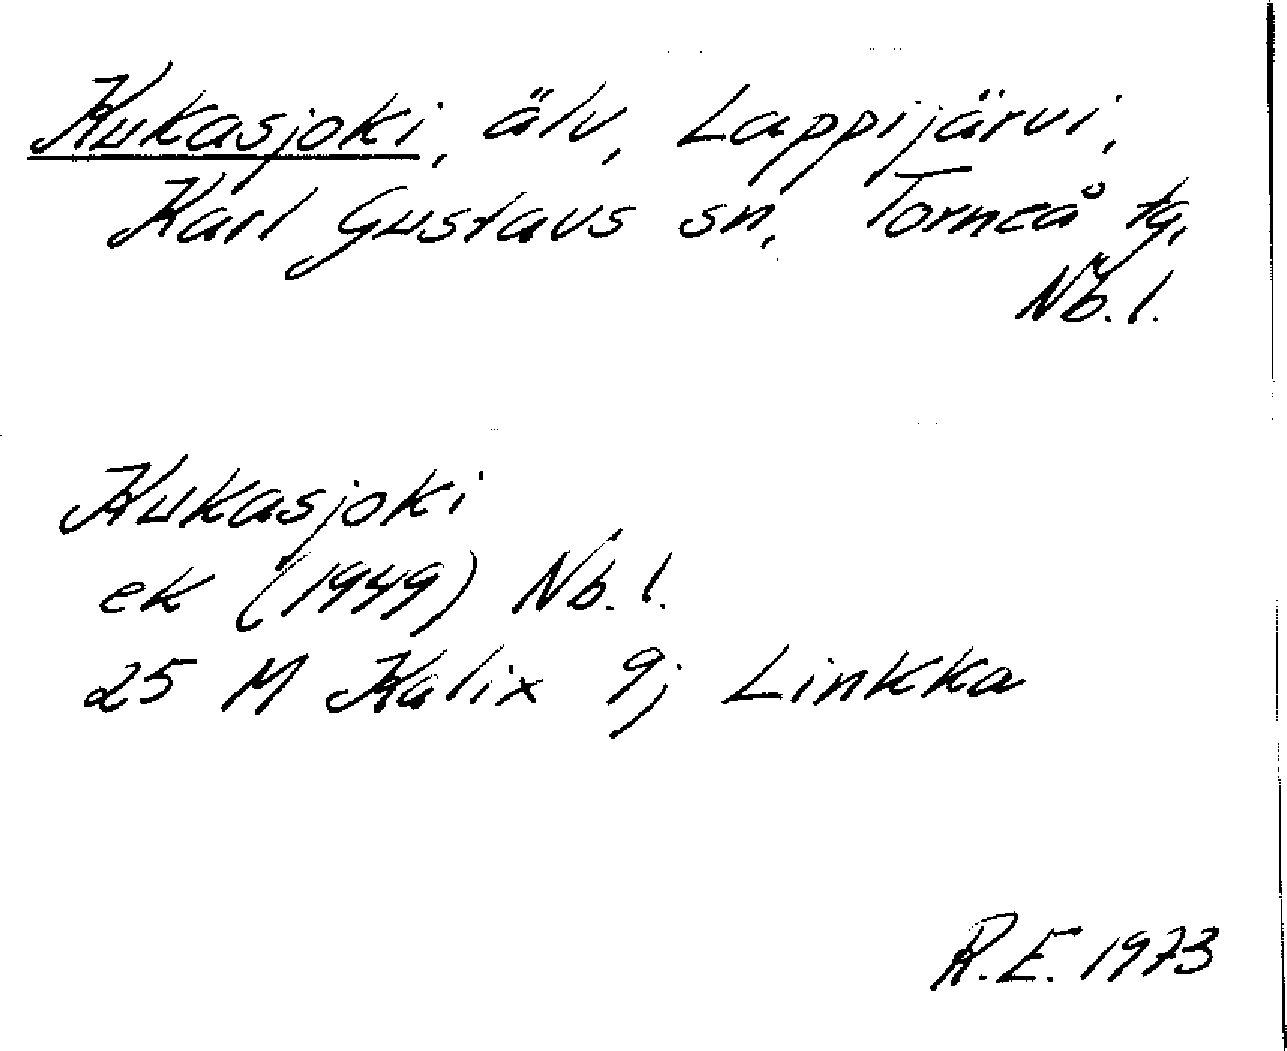 Kukasjoki, älv, Lappijärvi,
Karl Gustavs sn, Torneå tg,
Nb. l.
Kukasjoki
ek (1949) Nb. l.
25 M Kalix 9j Linkka
R.E. 1973